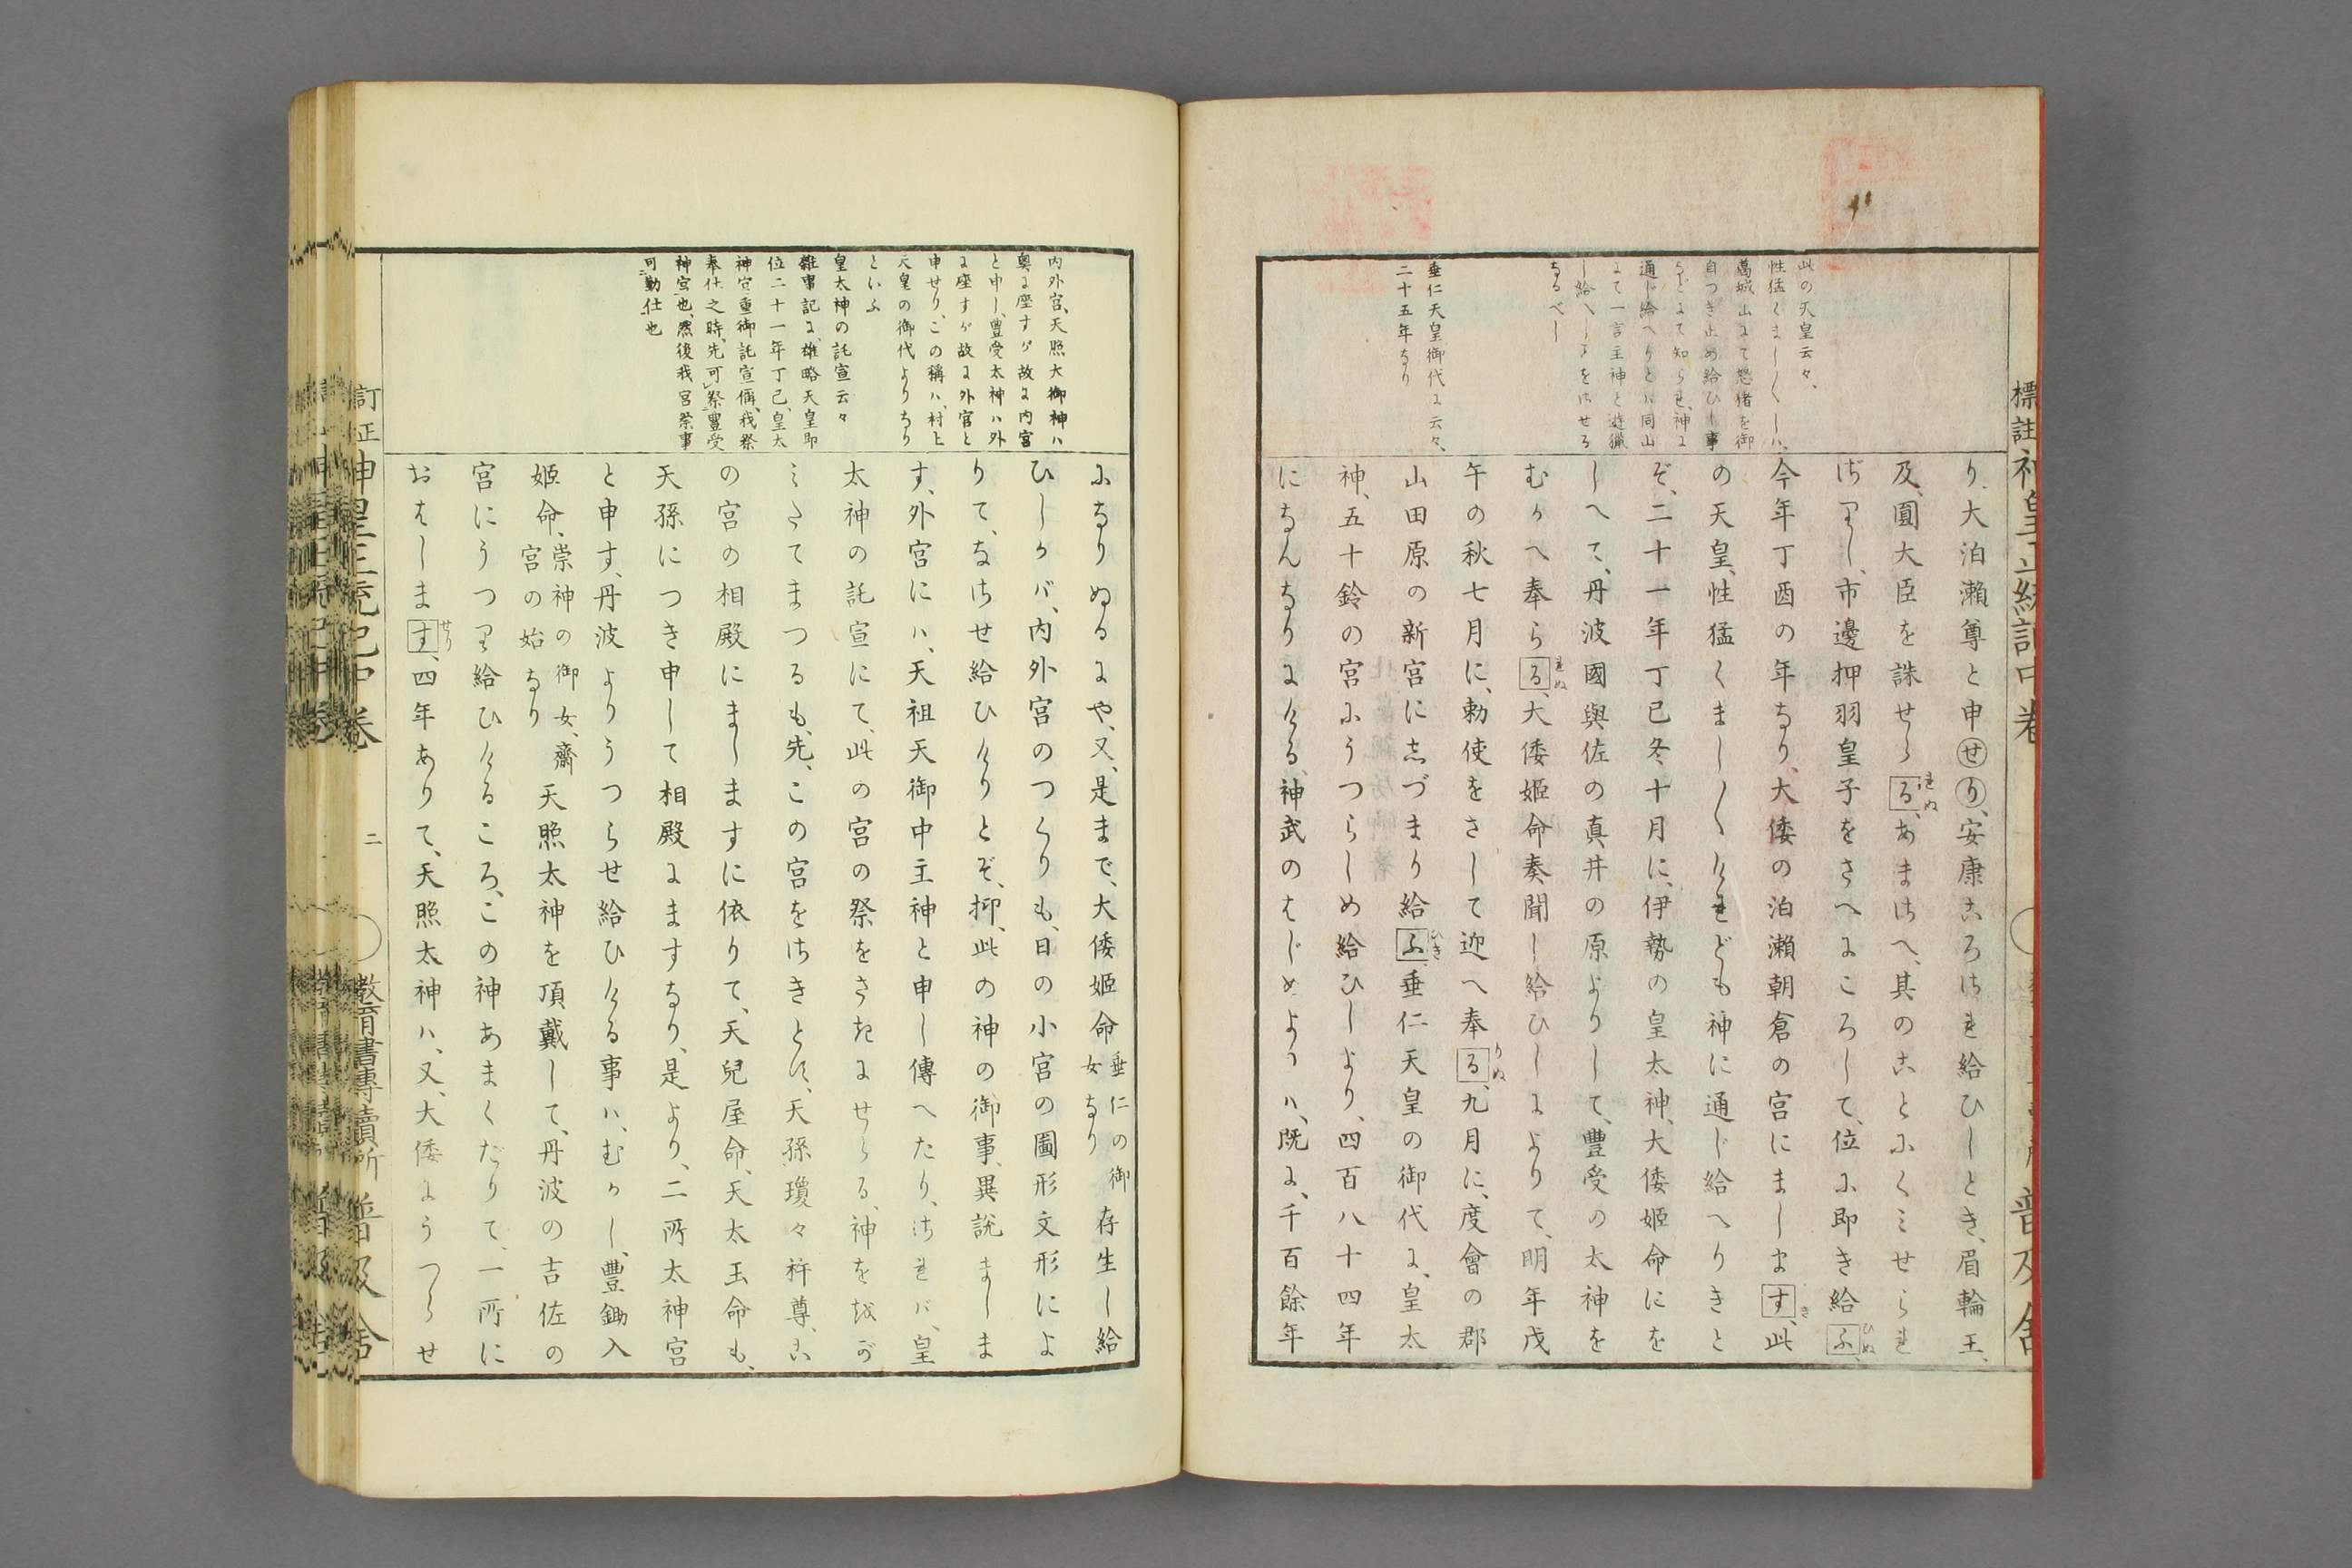 標註神皇正統記中卷
普及舍
此の天皇云々、
性猛くまし〱しハ、
葛城山にて怒猪を御
自つき止め給ひし事
などにて知られ、神に
通じ給へりとハ同山
にて一言主神と遊獵
し給へしことをいはせる
なるべし
垂仁天皇御代に云々、
二十五年なり
り、大泊瀬尊と申せり、安康ころされ給ひしとき、眉輪王、
及、圓大臣を誅せらるれぬ、あまさへ、其のことにくみせられ
ざりし、市邊押羽皇子をさへにころして、位に即き給ふひぬ、
今年丁酉の年なり、大倭の泊瀬朝倉の宮にましますき、此
の天皇、性猛くまし〱けれども神に通じ給へりきと
ぞ、二十一年丁巳冬十月に、伊勢の皇太神、大倭姫命にを
しへて、丹波國與佐の真井の原よりして、豐受の太神を
むかへ奉らるれぬ、大倭姫命奏聞し給ひしによりて、明年戊
午の秋七月に、勅使をさして迎へ奉るりぬ、九月に、度會の郡
山田原の新宮にしづまり給ふひき、垂仁天皇の御代に、皇太
神、五十鈴の宮にうつらしめ給ひしより、四百八十四年
になんなりにける、神武のはじめよりハ、既に、千百餘年
内外宮、天照大御神ハ
奧に座すが故に内宮
と申し、豐受太神ハ外
に座すが故に外宮と
申せり、この稱ハ、村上
天皇の御代よりなり
といふ
皇太神の託宣云々
雜事記に、雄略天皇即
位二十一年丁巳、皇太
神宮重御託宣偁、我祭
奉仕之時、先可祭豐受
神宮也、然後我宮祭事
可勤仕也
になりぬるにや、又、是まで、大倭姫命垂仁の御女なり存生し給
ひしかバ、内外宮のつくりも、日の小宮の圖形文形によ
りて、なさせ給ひけりとぞ、抑、此の神の御事、異説まします、
外宮にハ、天祖天御中主神と申し傳へたり、されバ、皇
太神の託宣にて、此の宮の祭をさきにせらる、神ををが
みたてまつるも、先、この宮をさきとす、天孫瓊々杵尊、こ
の宮の相殿にましますに依りて、天兒屋命、天太玉命も、
天孫につき申して相殿にますなり、是より、二所太神宮
と申す、丹波よりうつらせ給ひける事ハ、むかし、豐鋤入
姫命、崇神の御女、齋宮の始なり天照太神を頂戴して、丹波の吉佐の
宮にうつり給ひけるころ、この神あまくだりて、一所に
おはしますせり、四年ありて、天照太神ハ、又、大倭にうつらせ
訂正神皇正統記中卷
二
教育書專賣所
普及舍